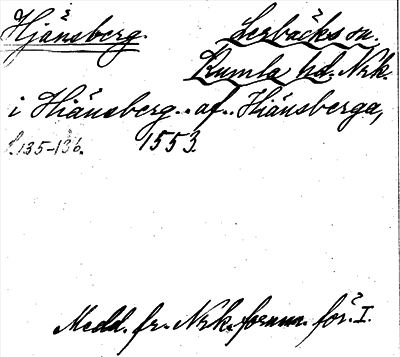 Hjänsberg. Lerbäcks sn.
Kumla hd. Nrk.
i Hiänsberg.. af.. Hiänsberga,
s. 135-136. 1553.
Medd. fr. Nrk. fornm. för. I.